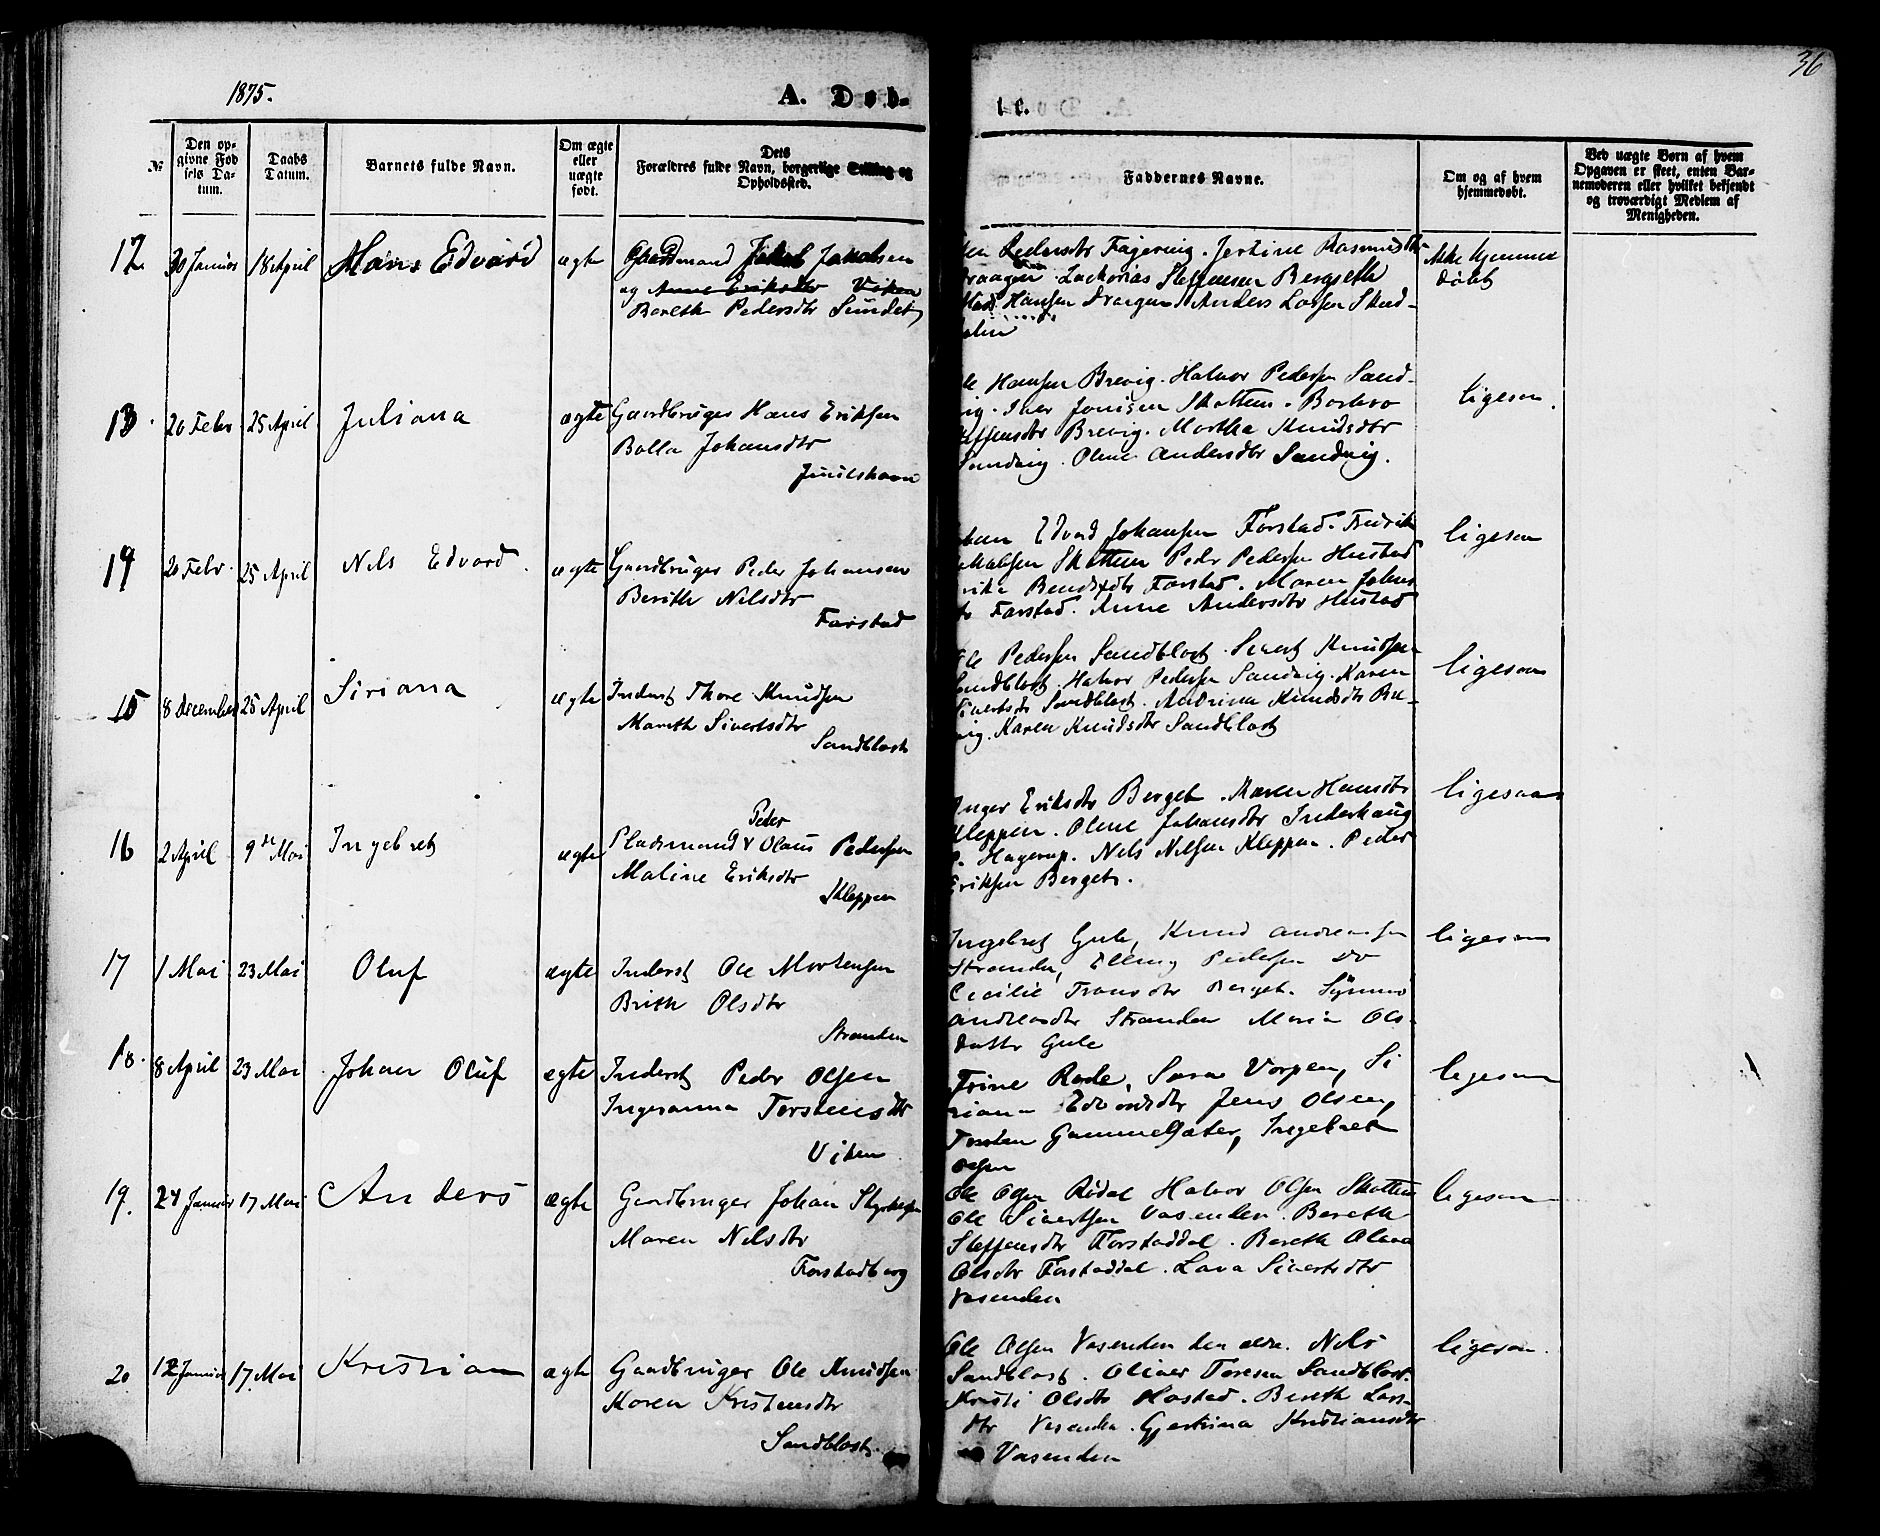 1875.
A. Døb-
te.
36
№
Den op-
givne Fød
sels Da-
tum.
Daabs
Datum.
Barnets fulde Navn.
Om ægte
eller
uægte
født.
Dets
Forældres fulde Navn, borgerlige Stilling og
Opholdssted.
Faddernes Navne.
Om og af hvem
hjemmedøbt.
Ved uægte Børn af hvem
Opgaven er skeet, enten Bar-
nemoderen eller hvilket bekjendt
og troværdigt Medlem af
Menigheden.
12 30 Januar 18 April Hans Edvard ægte Gaardmand Jakob Jakobsen
og Anne Eriksdtr Viken
Bereth Pedersdtr Sundet
Pedersdtr Fagervig. Jertine Rasmusdtr
Draagen. Zackarias Steffensen Bergseth
Mads Hansen Draagen Anders Larsen Skud-
Ikke hjemme
døbt
13. 20 Febr 25 April Juliana ægte Gaardbruger Hans Eriksen
Bolla Johansdtr
Juulshavn
Ole Hansen Brevig. Halvor Pedersen Sand-
vig. Iver Jonssen Skotten. Barbro
Steffensdtr Brevig. Martha Knudsdtr
Sandvig. Oline Andersdtr Sandvig.
ligesaa.
14 20 Febr. 25 April Nils Edvard. ægte Gaardbruger Peder Johansen
Berith Nilsdtr
Farstad
Johan Edvard Johansen Farstad. Fredrik
Skotten Peder Pedersen Hustad
Bendixdtr Farstad. Maren Johns
dtr Farstad. Anne Andersdtr Hustad
ligesaa
15 8 December 25 April Siriana ægte Inderst Thore Knudsen
Mareth Sivertsdtr
Sandblost
Ole Pedersen Sandblost. Sivert Knudsen
Sandblost. Halvor Pedersen Sandvig. Karen
Sivertsdtr Sandblost. Andrina Knudsdtr Bre-
vig. Karen Knudsdtr Sandblost
ligesaa
16 2 April 9de Mai Ingebret ægte Pladsmand Peder Olaus Pedersen
Maline Eriksdtr
Kleppen
Inger Eriksdtr Berget. Maren Hansdtr
Kleppen. Oline Johansdtr Inderhaug
P. Hagerup. Nels Nelsen Kleppen. Peder
Eriksen Berget.
ligesaa
17 1 Mai 23 Mai Oluf ægte Inderst Ole Mortensen
Brith Olsdtr
Stranden
Ingebret Gule, Knud Andreassen
Stranden, Elling Pedersen Do
Cecilie Fransdtr Berget. Synnøv
Andreasdtr Stranden Maria Ols-
datter Gule
ligesaa
18. 8 April 23 Mai Johan Oluf ægte Inderst Peder Olsen
Ingeranna Torstensdtr
Viken
Trine Rode, Sara Vorpen, Si
riana Edvardsdtr Jens Olsen,
Torsten Gammelsæter, Ingebret
Olsen
ligesaa
19. 24 Januar 17 Mai Anders ægte Gaardbruger Johan
Maren Nilsdtr
Farstadberg
Ole Olsen Rødal Halvor Olsen Skotten
Ole Sivertsen Vasenden. Bereth
Steffensdtr Farstaddal. Bereth Olava
Olsdtr Farstaddal. Lava Sivertsdtr
Vasenden
ligesaa
20 12 Januar 17 Mai Kristian ægte Gaardbruger Ole Knudsen
Karen Kristensdtr
Sandblost.
Ole Olsen Vasenden den ældre. Nils
Sandblost. Oliver Toresen Sandblost.
Kristi Olsdtr Hostad. Bereth Lars-
dtr Vasenden. Gjertrina Kristiansdtr
Vasenden
ligesaa.